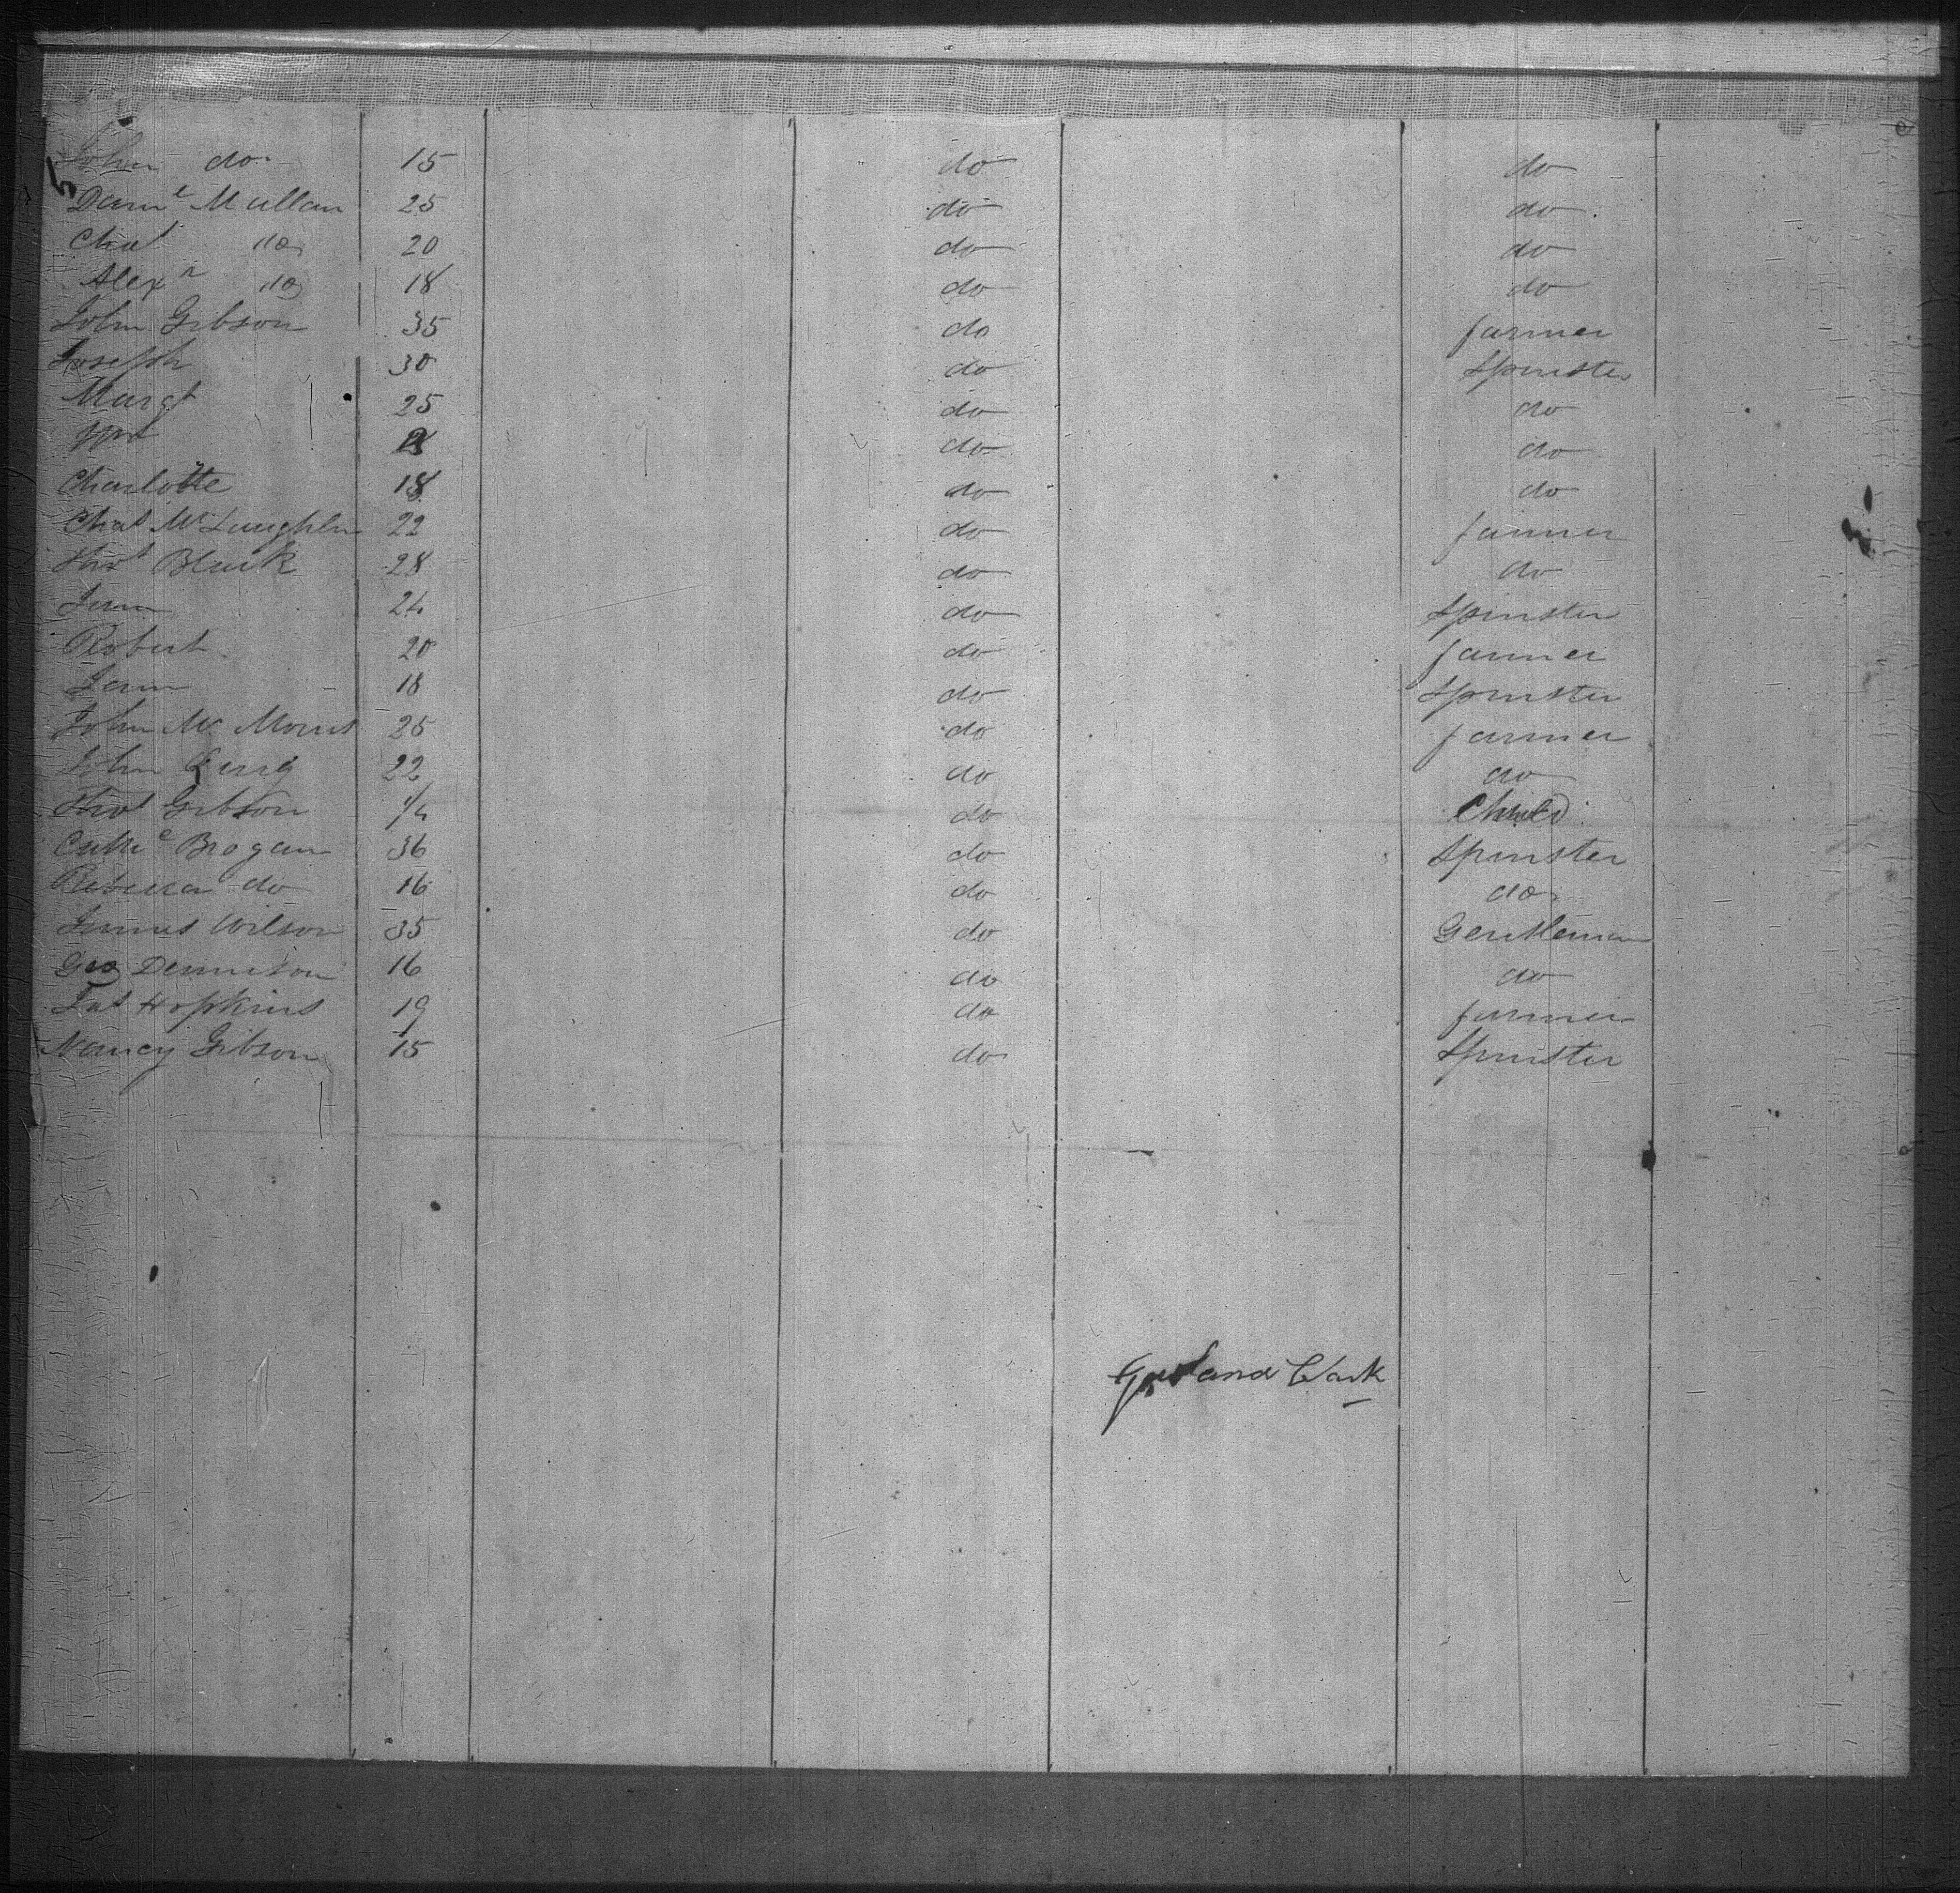 John do 15 do do
Danl Mullan 25 do do
Chas do 20 do do
Alexr do 18 do do
John Gibson 35 do farmer
Joseph 30 do Spinster
Margt 25 do do
do do
Charlotte 18 do do
Chas McLaughlin 22 do farmer
Thos Black 28 do do
Jean 24 do Spinster
Robert 20 do farmer
Jean 18 do Spinster
John Mc Morris 25 do farmer
John 22 do do
Thos Gibson do Child
Cathe Brogan 36 do Spinster
Rebecca do 16 do do
James Wilson 35 do Gentleman
Geo Dennison 16 do do
Jas Hopkins 19 do farmer
Nancy Gibson 15 do Spinster
Garland Clark